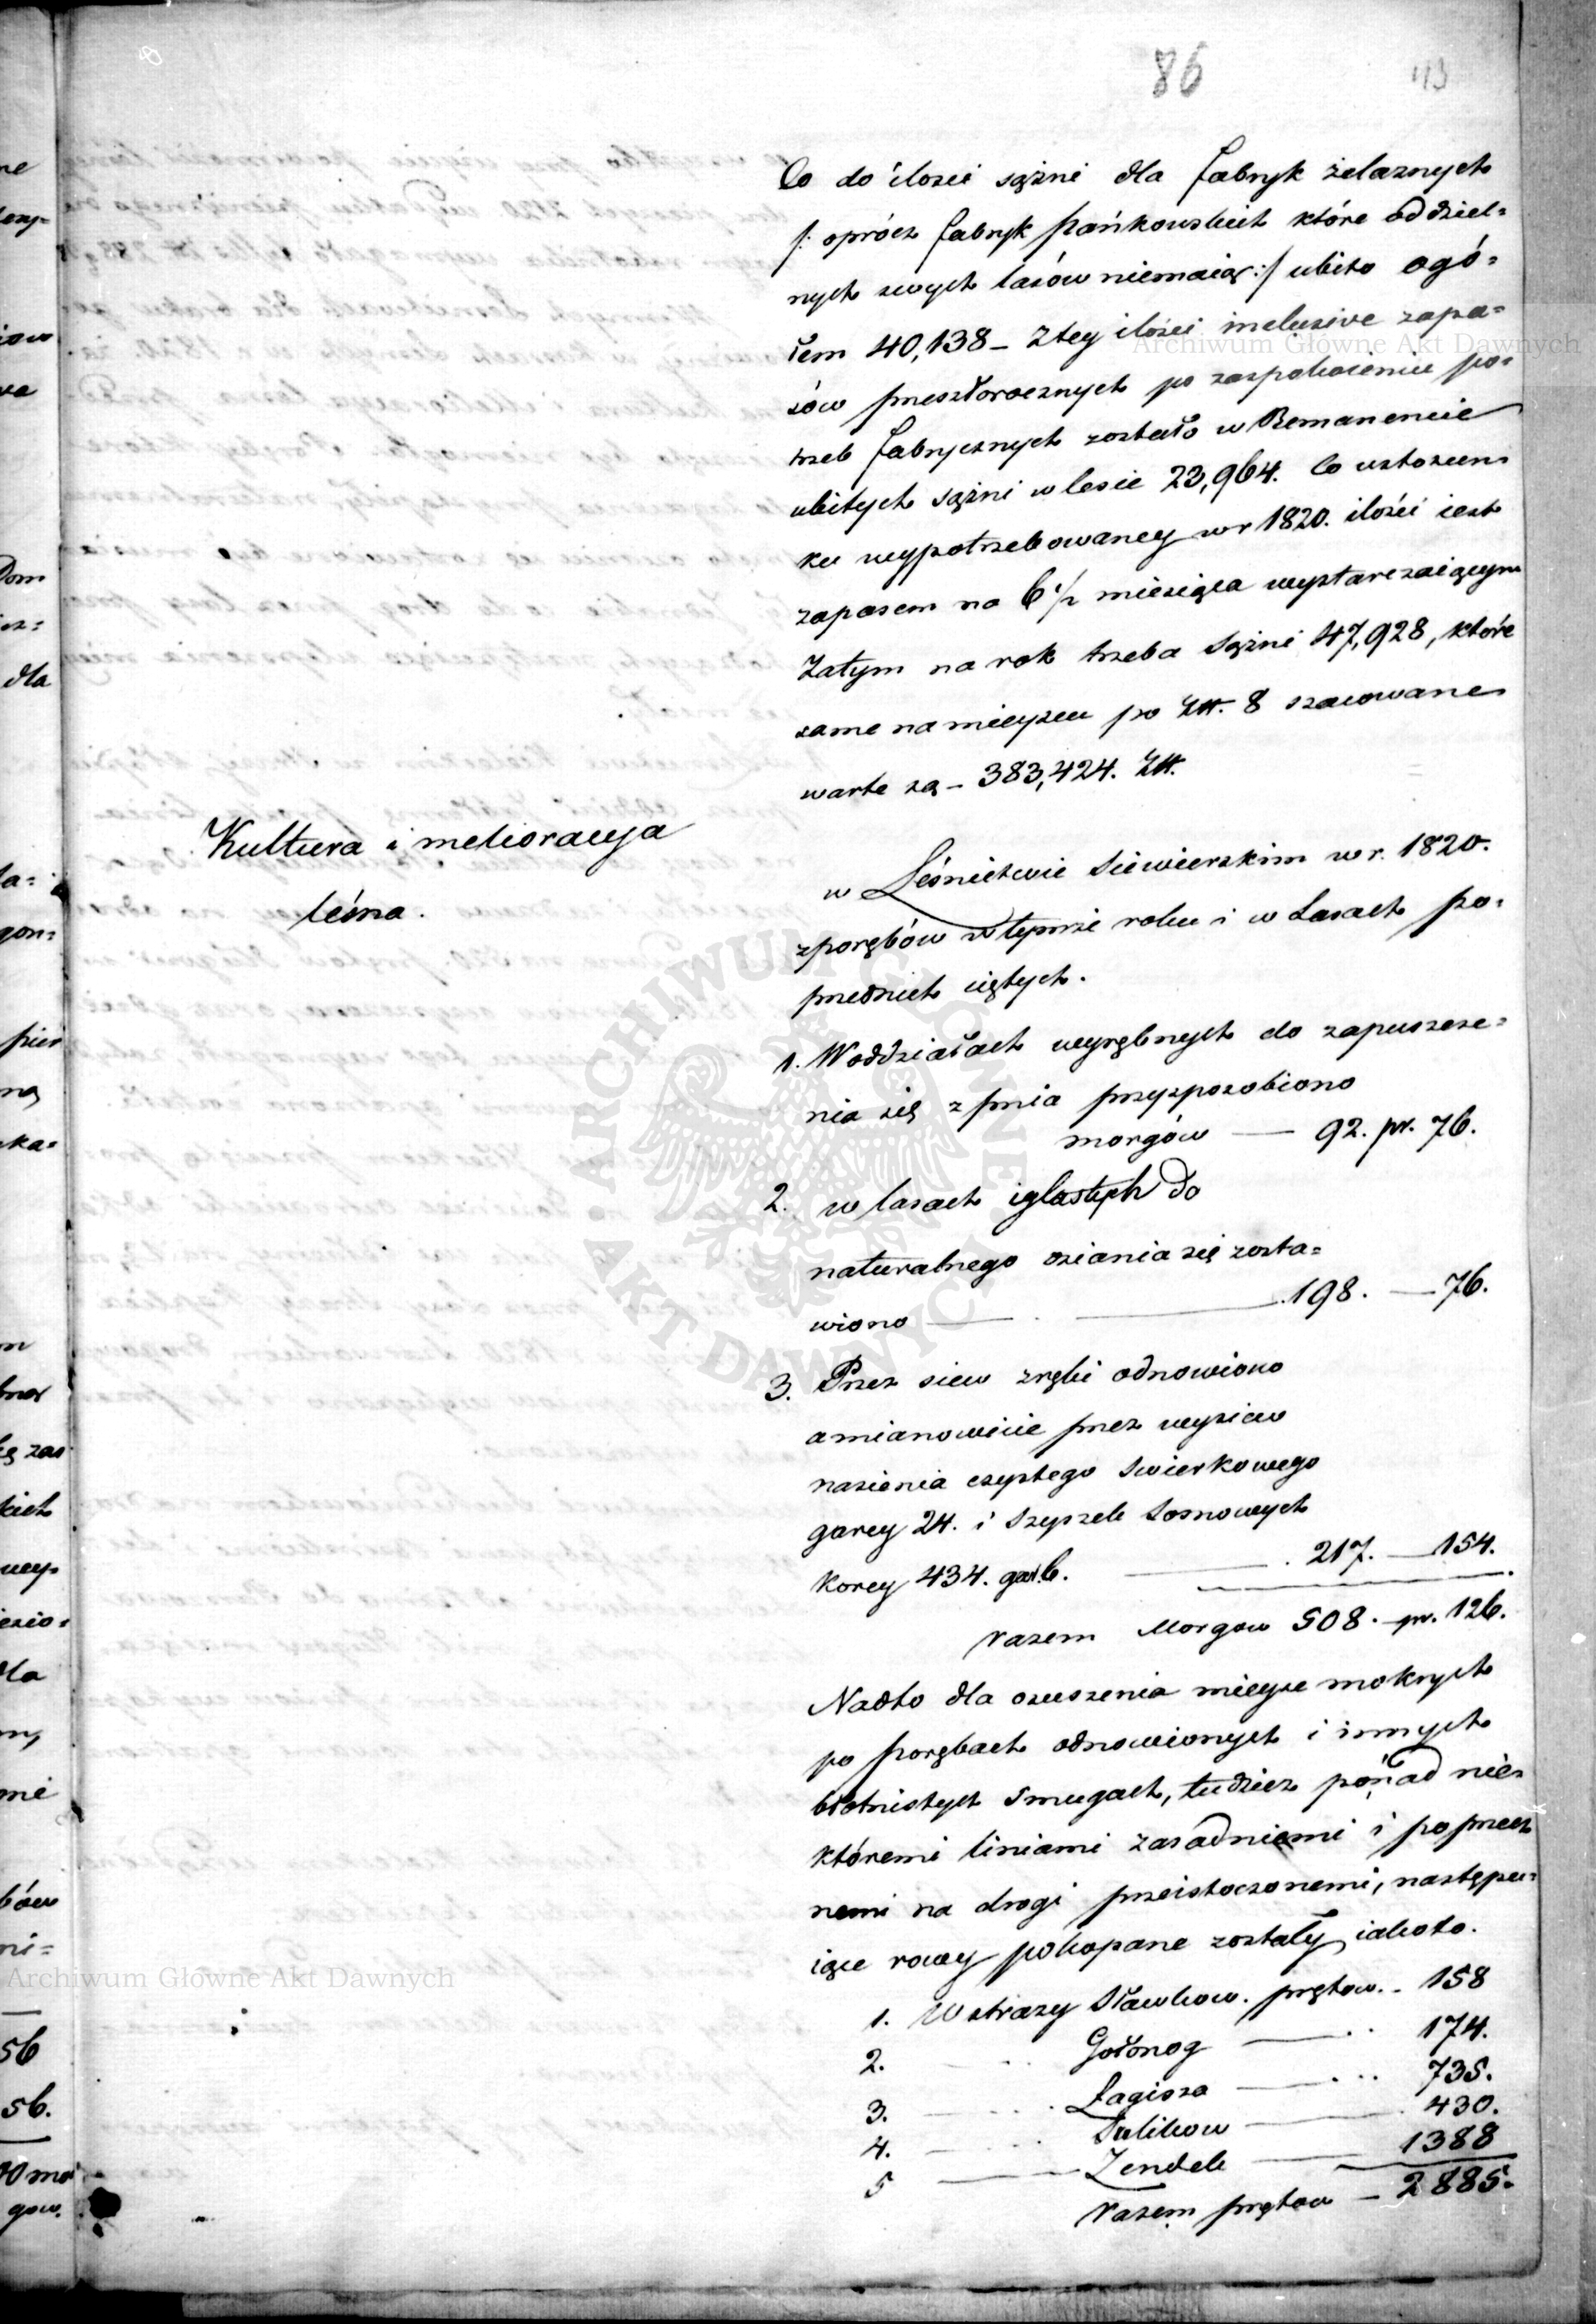 86
113
Co do ilości sążni dla fabryk żelaznych
/: oprócz fabryk Pańkowskich które oddziel=
nych swych lasów niemaią :/ ubito ogó=
łem 40,138 – Ztey ilości inclusive zapa=
sów przeszłorocznych po zaspokoieniu po=
trzeb fabrycznych zostało w Remanencie
ubitych sążni w lesie 23,964. Co wstosun=
ku wypotrzebowaney w r 1820. ilości iest
zapasem na 6 1/2 miesiąca wystarczaiącym
Zatym na rok trzeba Sążni 47,928, które
same na mieyscu po Złł. 8 szacowane
warte są – 383,424. Złł.
Kultura i melioracyja
leśna.
w Leśnictwie Siewierskim w r. 1820.
zporębów wtymże roku i w Lasach po=
przednich ciętych.
1. Woddziałach wyrębnych do zapuszcze=
nia się z pnia przysposobiono
morgów — 92. pr. 76.
2. w lasach iglastych do
naturalnego osiania się zosta=
wiono — 198. — 76.
3. Przez siew zręby odnowiono
amianowicie przez wysiew
nasienia czystego Swierkowego
garcy 24. i Szyszek Sosnowych
Korcy 434. gar. 6. — 217. — 154.
razem Morgow 508. – pr. 126.
Nadto dla osuszenia mieysc mokrych
po porębach odnowionych i innych
błotnistych Smugach, tudzież ponad nie=
któremi liniami zasadniemi i poprzecz
nemi na drogi przeistoczonemi, następu=
iące rowy pokopane zostały iakoto.
1. W straży Sławkow. prętow. – 158
2. — Gołonog — 174.
3. — Łagisza — 735.
4. — Sulikow — 430.
5 — Zendek — 1388
razem prętow – 2885.
Archiwum Główne Akt Dawnych
Archiwum Główne Akt Dawnych
ARCHIWUM GŁÓWNE · AKT DAWNYCH ·